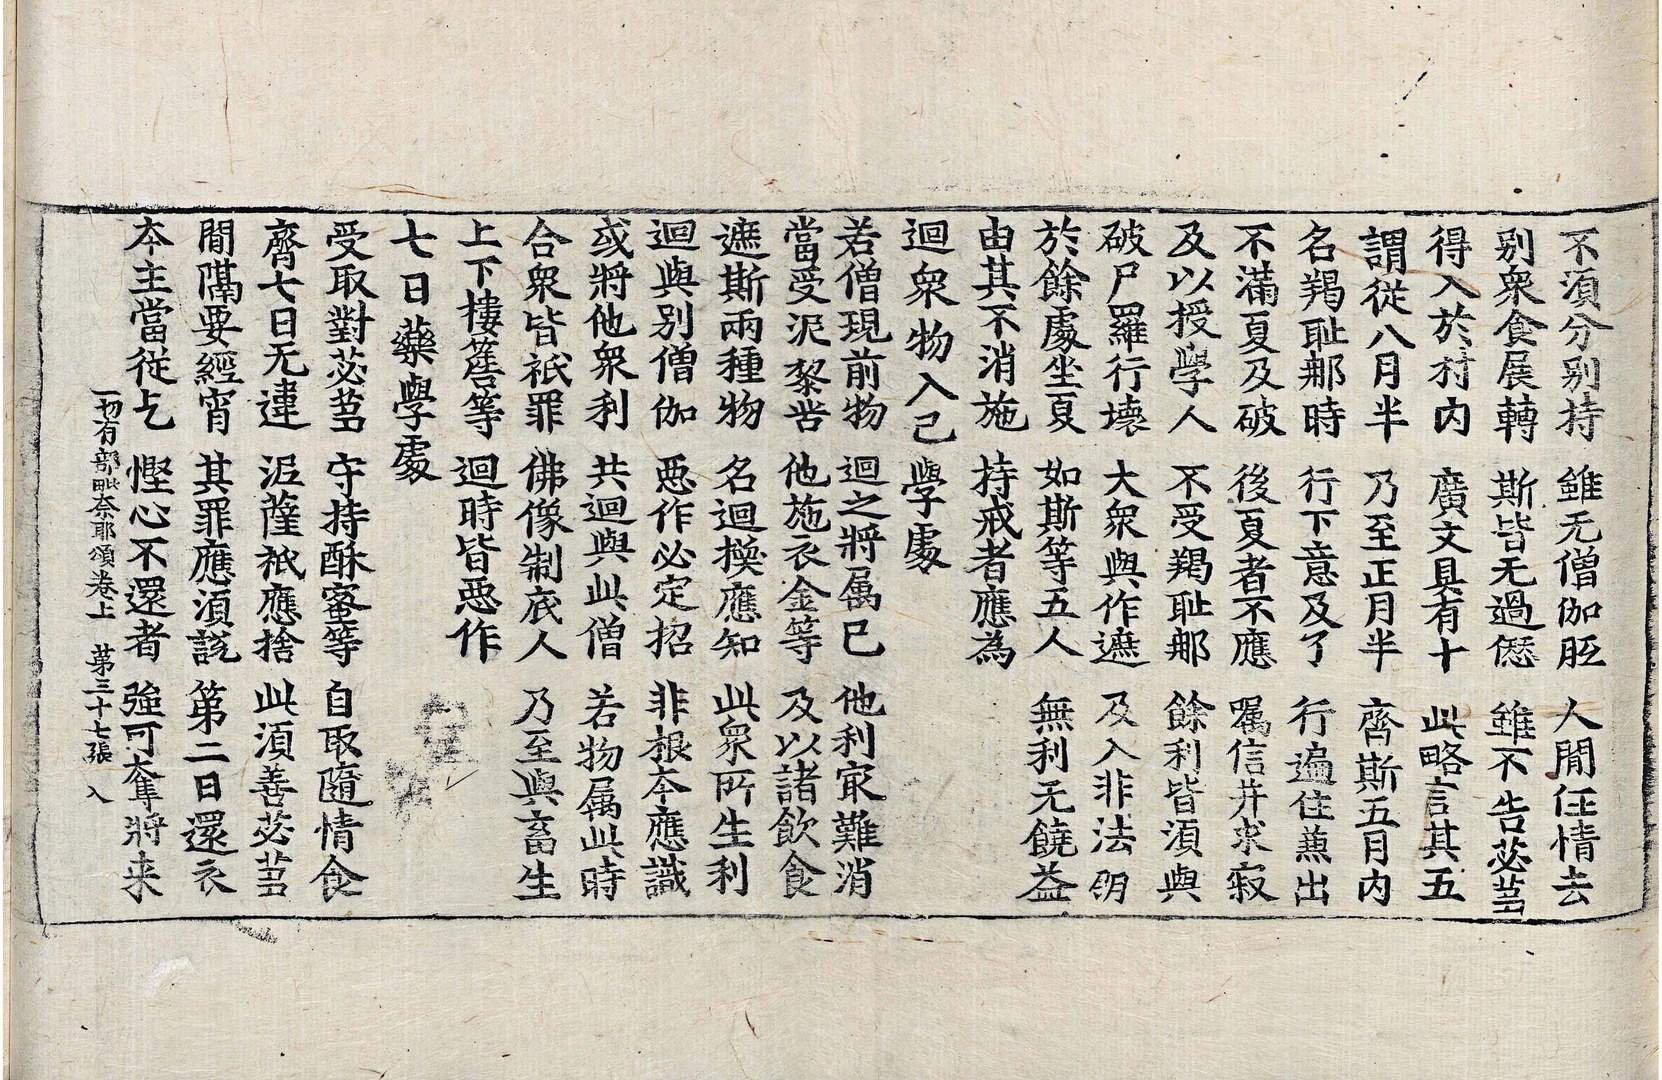 不湏分别持 雖无僧伽胝 人閒任情去
别衆食展轉 斯皆无過愆 雖不告苾芻
得入於村内 廣文具有十 此略言其五
謂從八月半 乃至正月半 齊斯五月内
名羯耻那時 行下意及了 行遍住兼出
不滿夏及破 後夏者不應 囑信并求寂
及以授學人 不受羯耻那 餘利皆湏與
破尸羅行壞 大衆與作遮 及入非法朋
於餘處坐夏 如斯等五人 無利无饒益
由其不消施 持戒者應為
迴衆物入己學處
若僧現前物 迴之將属己 他利㝡難消
當受泥黎苦 他施衣金等 及以諸飲食
遮斯兩種物 名迴換應知 此衆所生利
迴與别僧伽 惡作必定招 非根本應識
或將他衆利 共迴與此僧 若物属此時
合衆皆衹罪 佛像制底人 乃至與畜生
上下樓簷等 迴時皆惡作
七日藥學處
受取對苾芻 守持酥蜜等 自取隨情食
齊七日无違 泥薩衹應捨 此湏善苾芻
閒隔要經宵 其罪應湏説 第二日還衣
本主當從乞 慳心不還者 強可奪將来
一切有部毗奈耶頌卷上 第三十七張 入